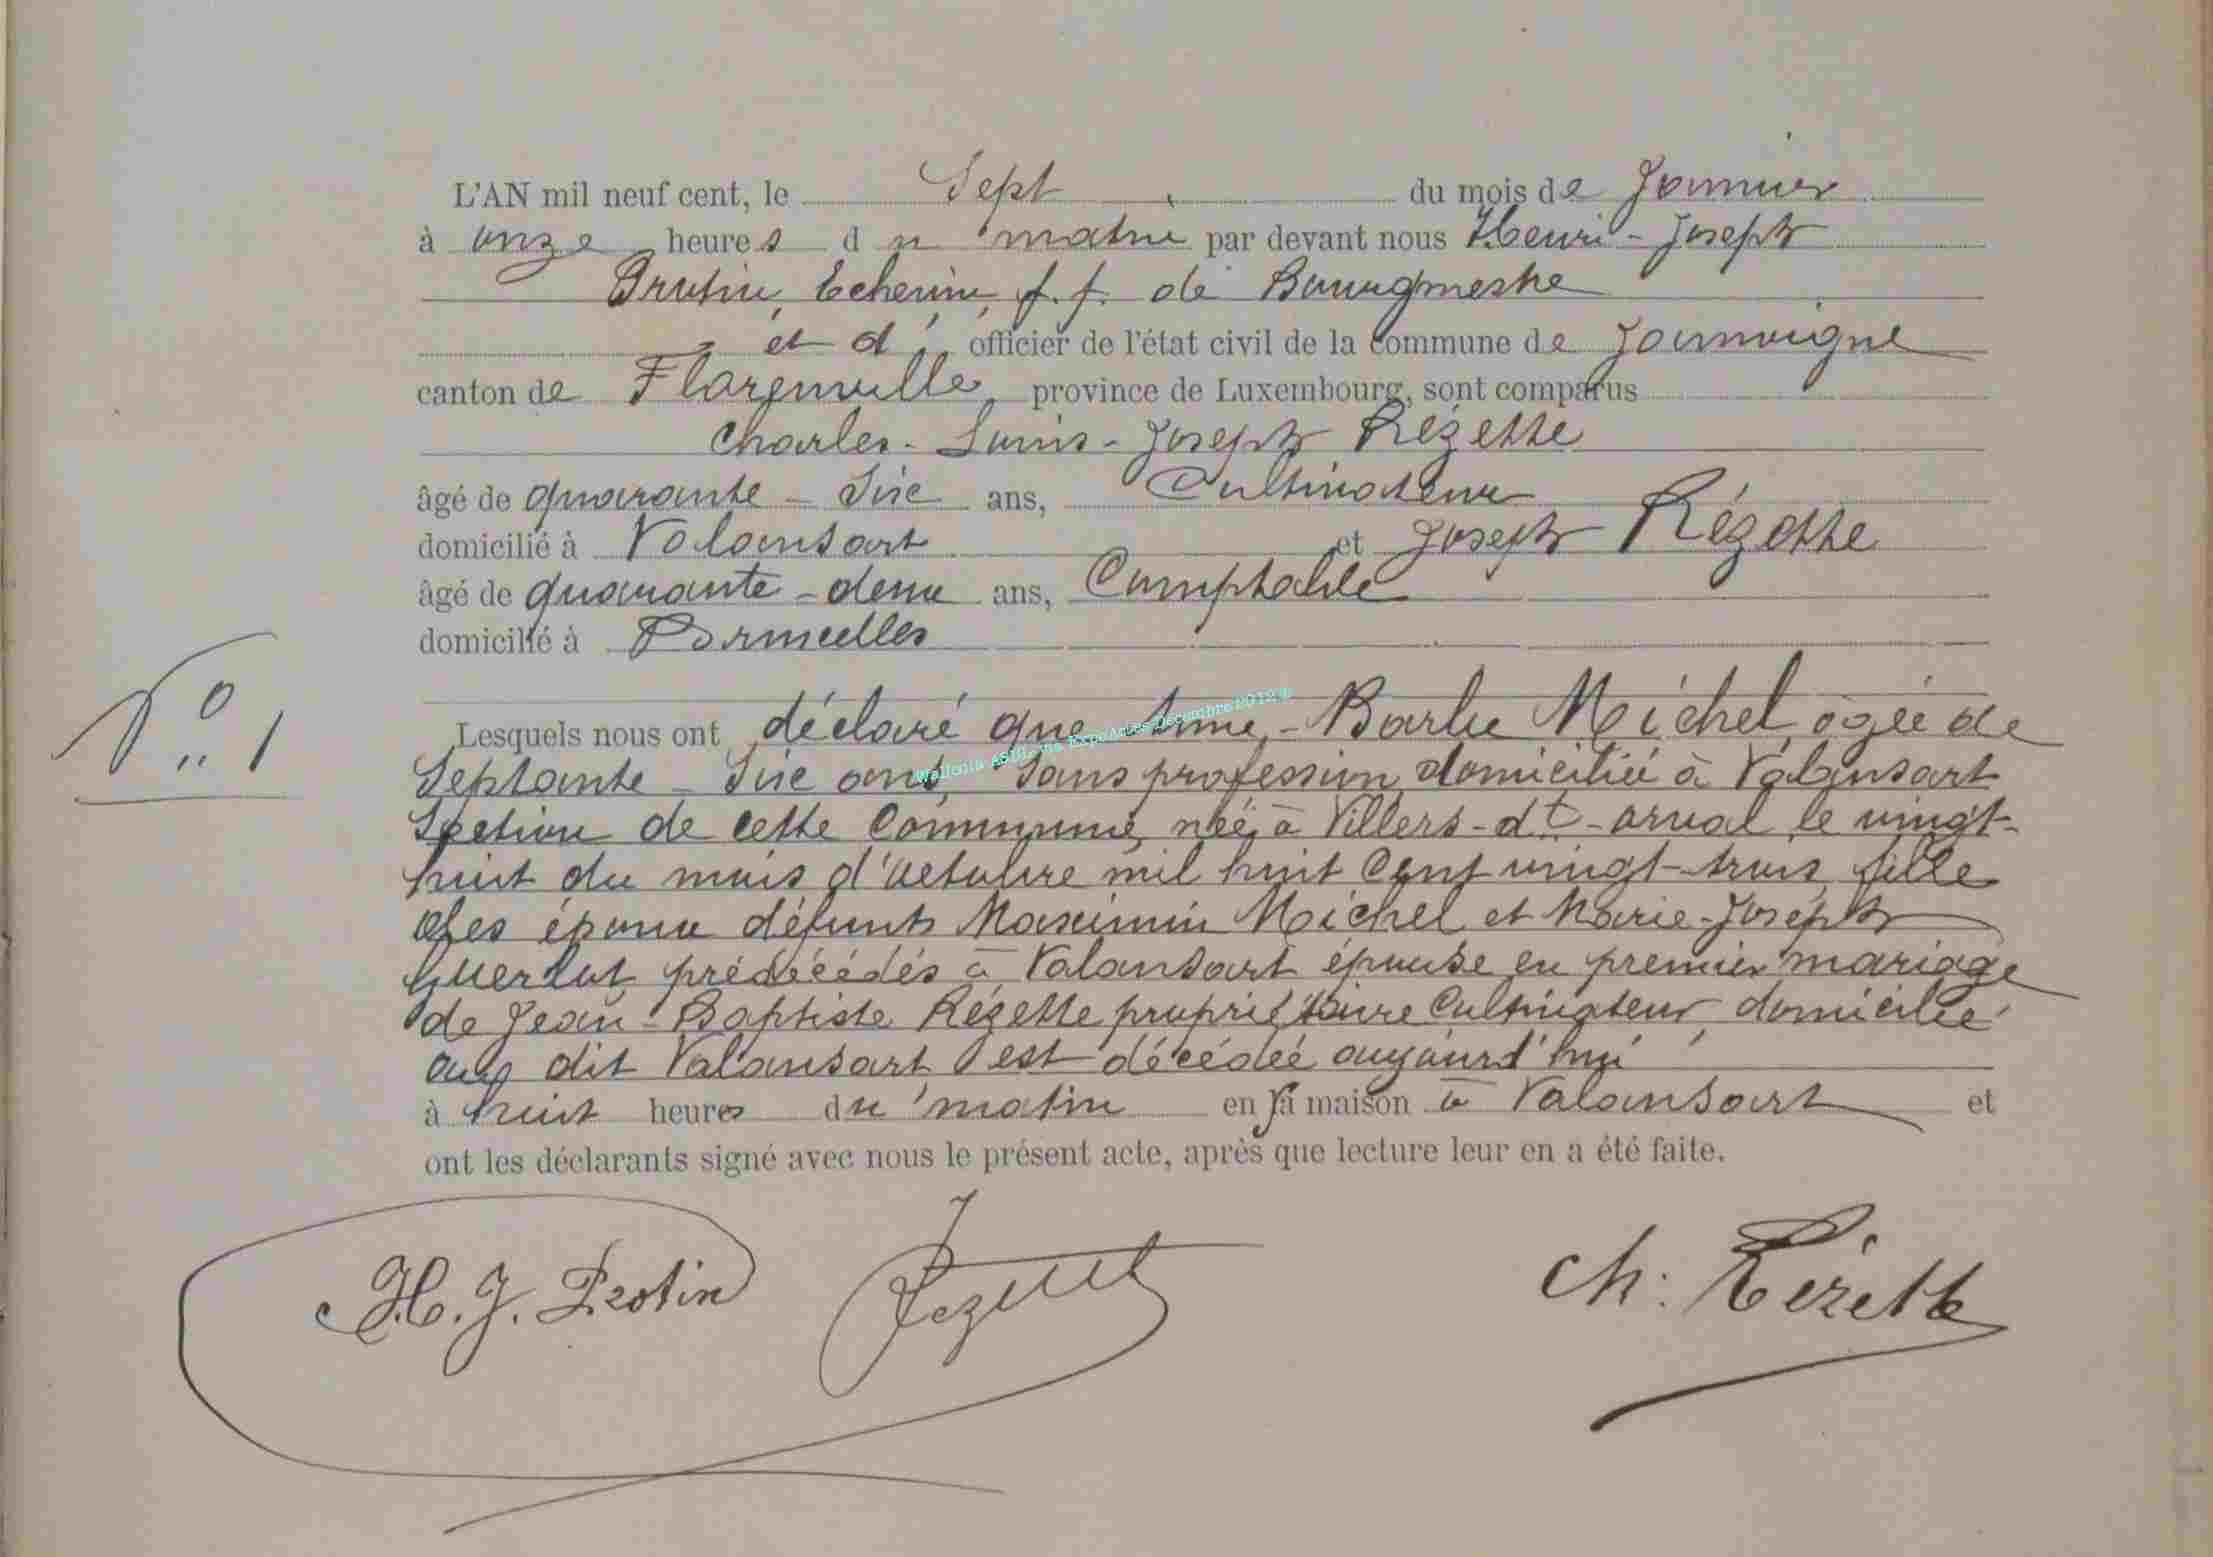 L'AN mil neuf cent, le Sept du mois de Janvier
à onze heures du matin par devant nous Henri-Joseph
Protin, Echevin, f.f. de Bourgmestre
et d' officier de l'état civil de la commune de Jamoigne
canton de Florenville, province de Luxembourg, sont comparus
Charles-Louis-Joseph Rézette
âgé de quarante-six ans, Cultivateur
domicilié à Valansart et Joseph Rézette
âgé de quarante-deux ans, Comptable
domicilié à
N° 1
Lesquels nous ont déclaré que Anne-Barbe Michel, agée de
Septante-Six ans, Sans profession, domiciliée à Valansart
Section de cette Commune, née à Villers-dt-orval le vingt-
huit du mois d'octobre mil huit Cent vingt-trois, fille
des époux défunts Maximin Michel et Marie-Joseph
Guerlot prédécédés à Valansart épouse en premier mariage
de Jean-Baptiste Rézette propriétaire Cultivateur, domicilié
au dit Valansart, est décédée aujourd'hui
à huit heures du matin en sa maison à Valansart et
ont les déclarants signé avec nous le présent acte, après que lecture leur en a été faite.
H. J. Protin Rézette Ch: Rézette
Wallonia ASBL via ExpoActes Décembre 2012 ©